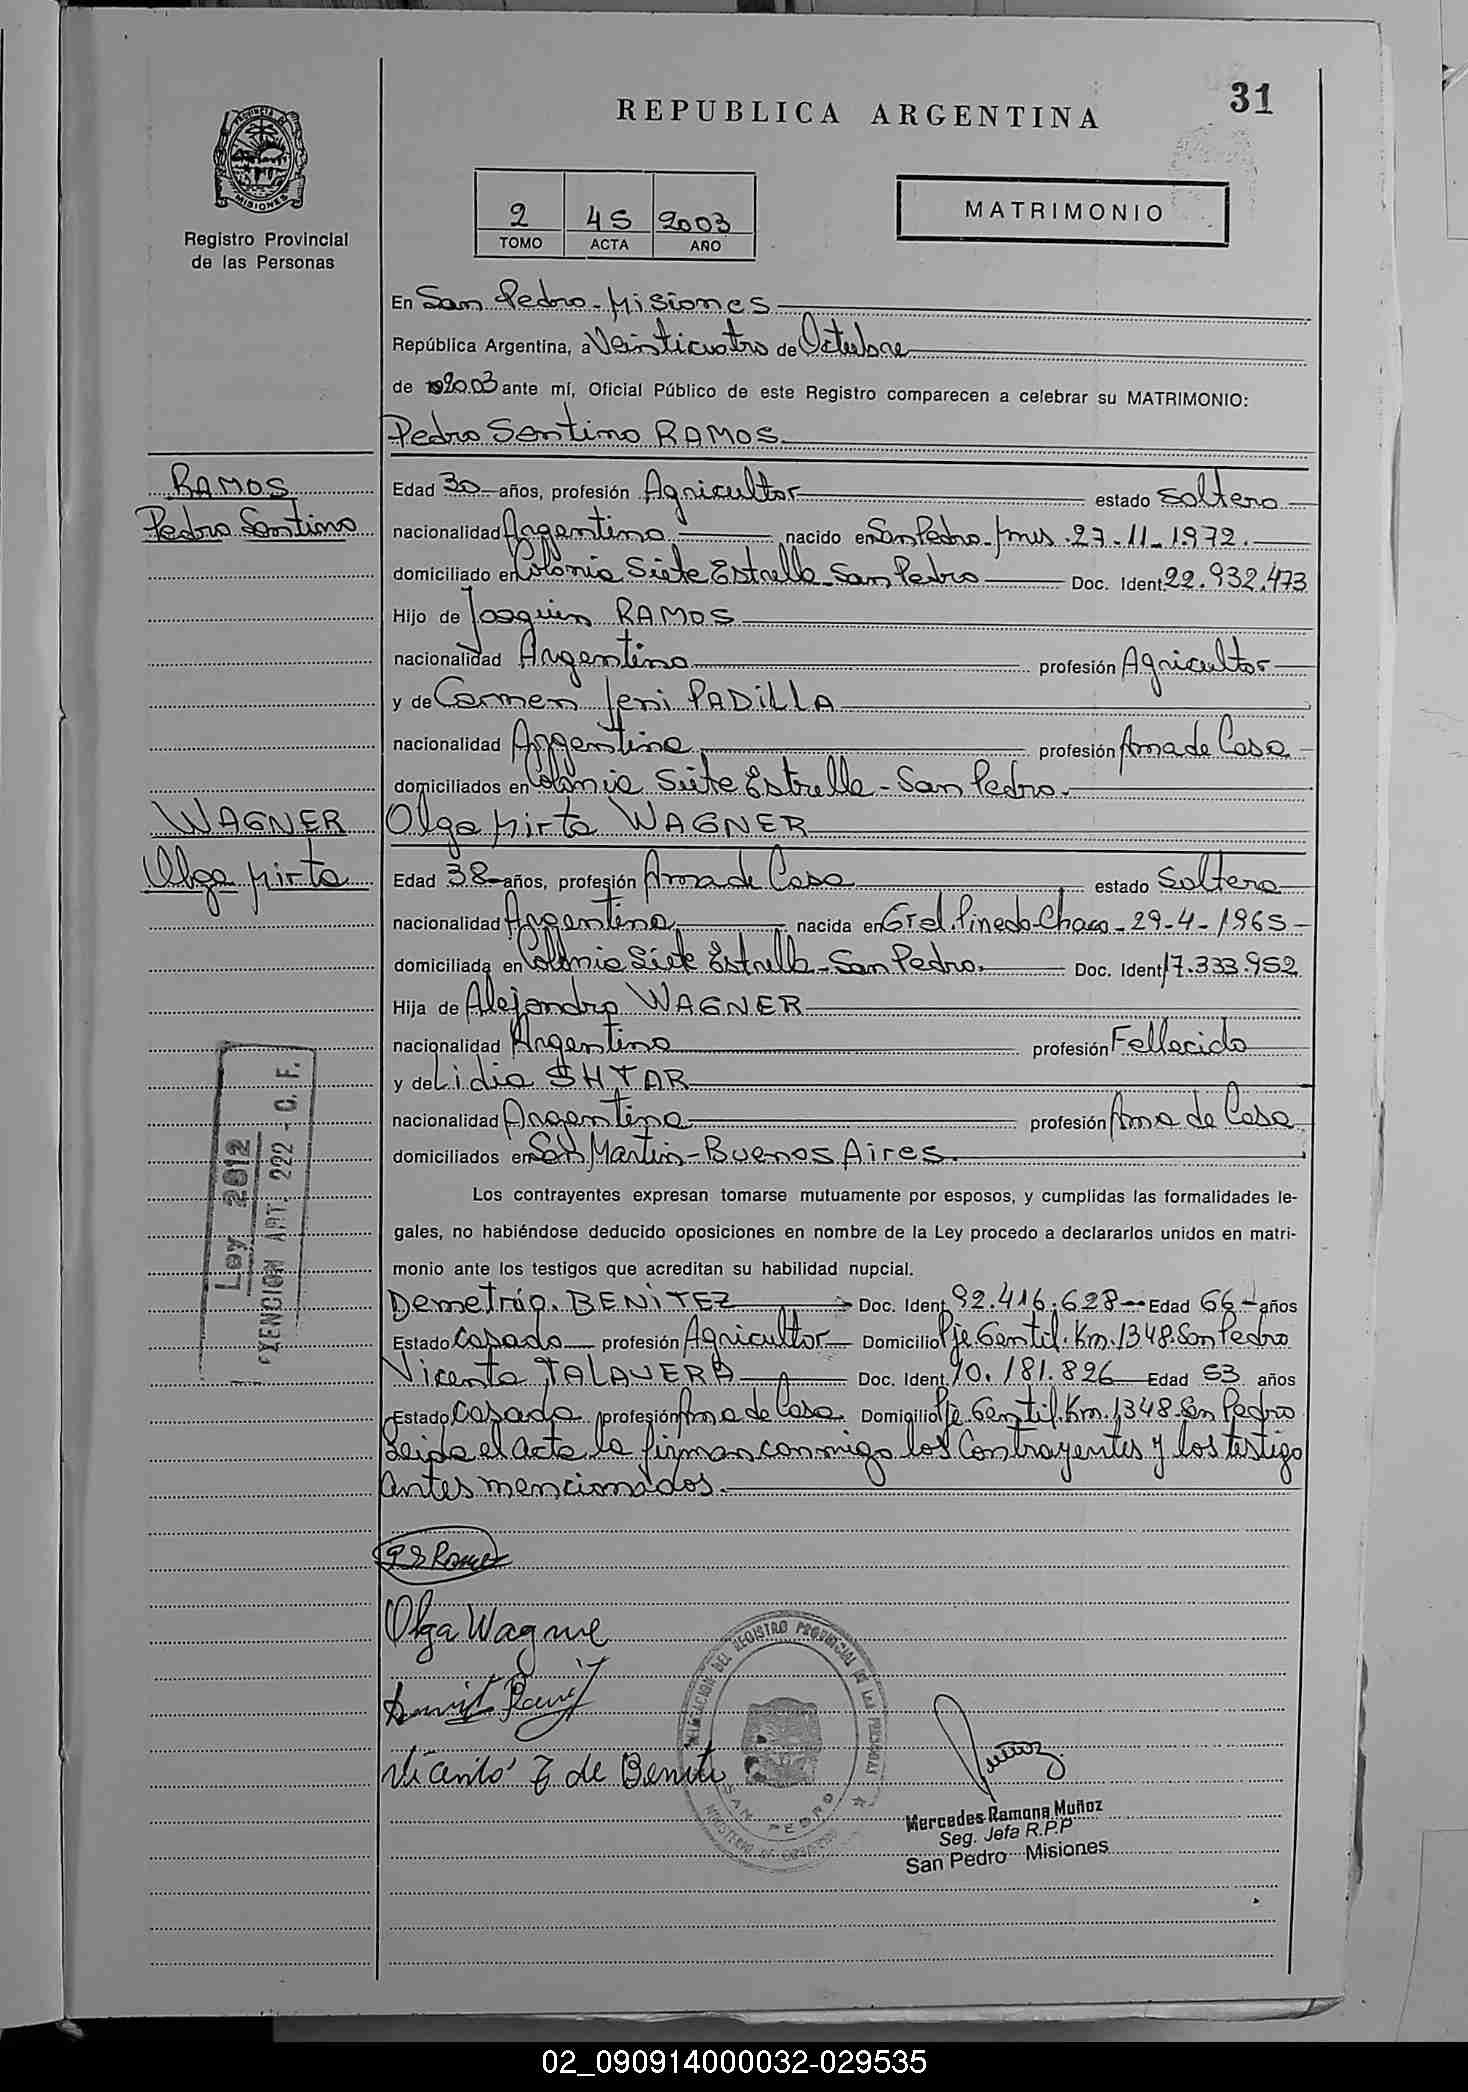 31
REPUBLICA ARGENTINA
PROVINCIA DE
MISIONES
Registro Provincial
de las Personas
2 45 2003
TOMO ACTA AÑO
MATRIMONIO
En San Pedro - Misiones
República Argentina, a Veinticuatro de Octubre
de 2003 ante mí, Oficial Público de este Registro comparecen a celebrar su MATRIMONIO:
Pedro Santino RAMOS
RAMOS
Pedro Santino
Edad 30 años, profesión Agricultor estado Soltero
nacionalidad Argentina nacido en San Pedro - Mnes. 27-11-1972.
domiciliado en Colonia Siete Estrella - San Pedro Doc. Ident. 22.932.473
Hijo de Joaquin RAMOS
nacionalidad Argentina profesión Agricultor
y de Carmen Jeni PADILLA
nacionalidad Argentina profesión Ama de Casa
domiciliados en Colonia Siete Estrella - San Pedro.
WAGNER
Olga Mirta
Olga Mirta WAGNER
Edad 38 años, profesión Ama de Casa estado Soltera
nacionalidad Argentina nacida en Gral. Pinedo - Chaco - 29-4-1965
domiciliada en Colonia Siete Estrella - San Pedro. Doc. Ident. 17.333.952
Hija de Alejandro WAGNER
nacionalidad Argentina profesión Fallecido
y de Lidia SHTAR
nacionalidad Argentina profesión Ama de Casa
domiciliados en San Martin - Buenos Aires.
Ley 2012
EXENCION ART. 222 - C. F.
Los contrayentes expresan tomarse mutuamente por esposos, y cumplidas las formalidades le-
gales, no habiéndose deducido oposiciones en nombre de la Ley procedo a declararlos unidos en matri-
monio ante los testigos que acreditan su habilidad nupcial.
Demetrio. BENITEZ Doc. Ident. 92.416.628 Edad 66 años
Estado Casado profesión Agricultor Domicilio Pje Gentil. Km. 1348. San Pedro
Vicenta TALAVERA Doc. Ident. 10.181.826 Edad 53 años
Estado Casada profesión Ama de Casa. Domicilio Pje Gentil. Km. 1348 - San Pedro
Leida el acta la firman conmigo los Contrayentes y los testigo
antes mencionados.
P S Ramos
Olga Wagner
Vicenta T de Benit
DELEGACION DEL REGISTRO PROVINCIAL DE LAS PERSONAS
SAN PEDRO
MINISTERIO DE GOBIERNO
Muñoz
Mercedes Ramona Muñoz
Seg. Jefa R.P.P
San Pedro Misiones
02_090914000032-029535